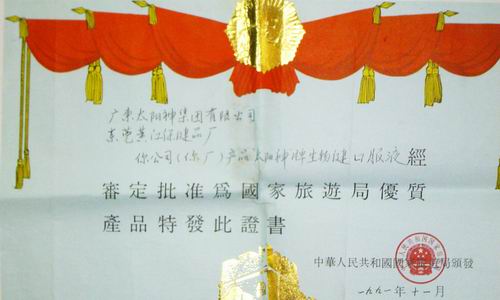 广东太阳神集团有限公司
东莞黄江保健品厂
你公司(你厂)产品"太阳神"牌生物健口服液經
審定批准爲國家旅遊局優質
產品特發此證書
中華人民共和國國家旅遊局頒發
一九九一年十一月